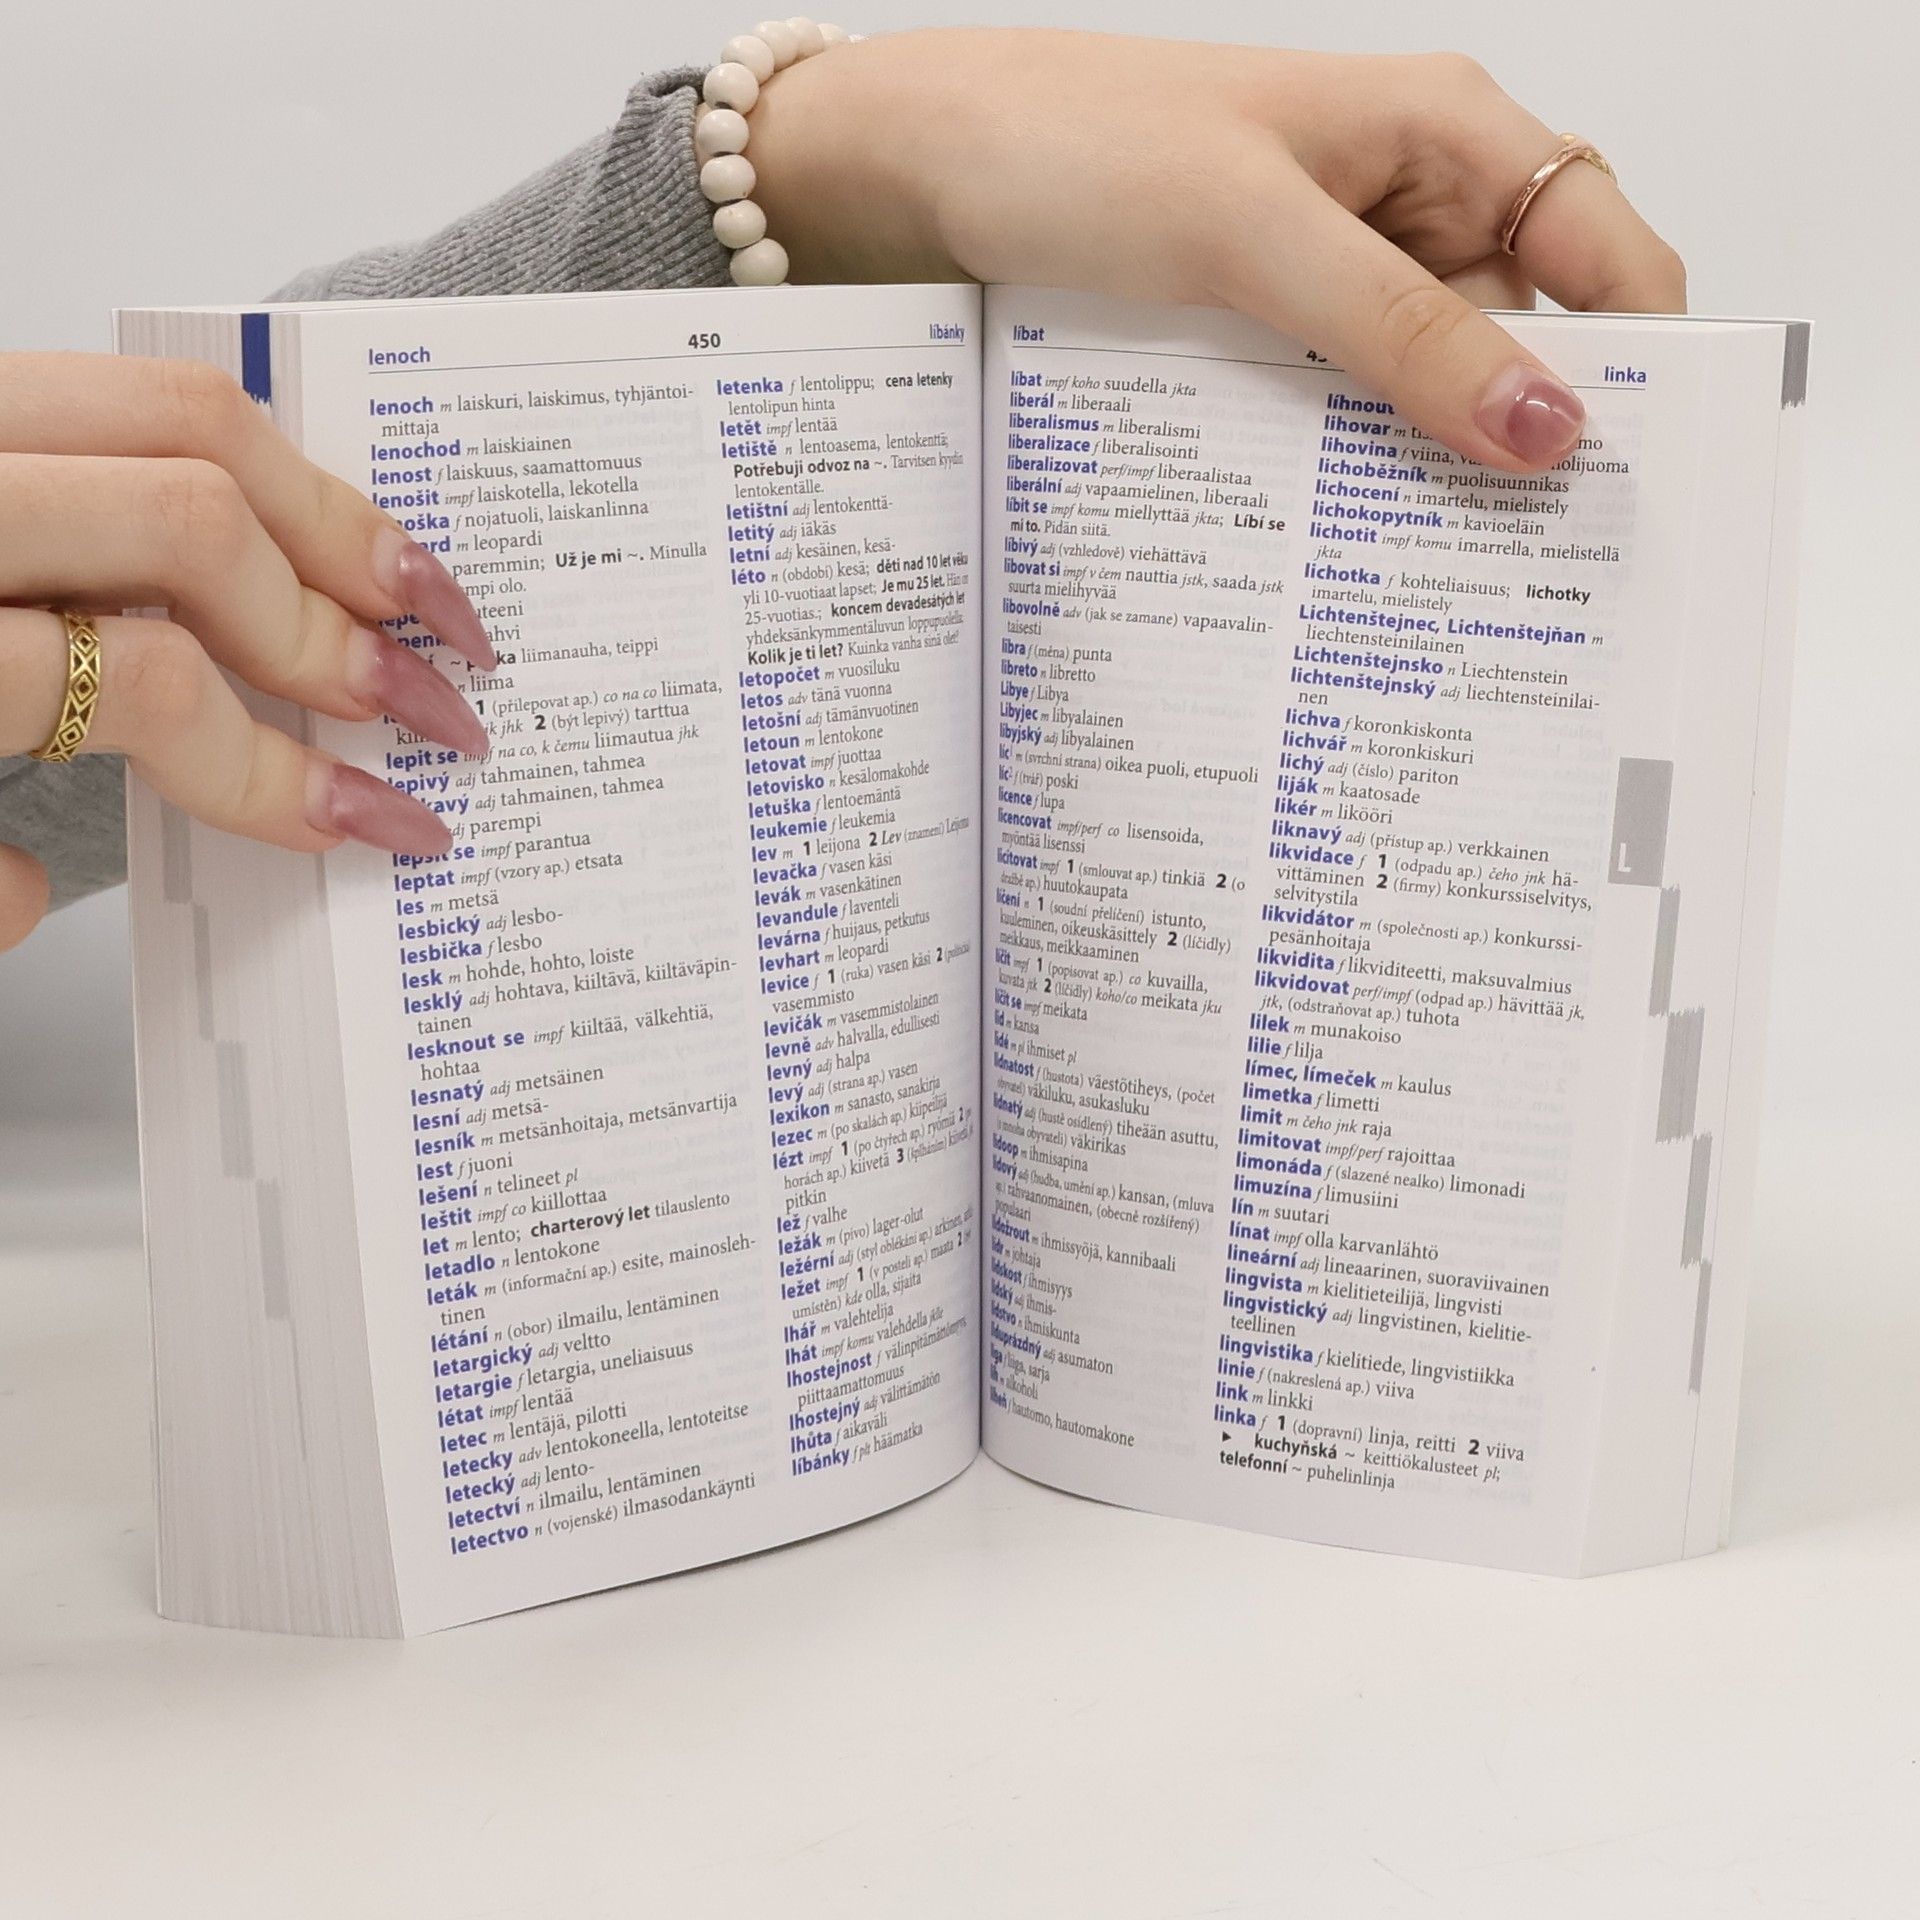 lenoch 450 líbánky
lenoch m laiskuri, laiskimus, tyhjäntoi-
mittaja
lenochod m laiskiainen
lenost f laiskuus, saamattomuus
lenošit impf laiskotella, lekotella
f nojatuoli, laiskanlinna
m leopardi
paremmin; Už je mi ~. Minulla
olo.
~ liimanauha, teippi
n liima
1 (přilepovat ap.) co na co liimata,
jk jhk 2 (být lepivý) tarttua
lepit se impf na co, k čemu liimautua jhk
lepivý adj tahmainen, tahmea
adj tahmainen, tahmea
adj parempi
lepšit se impf parantua
leptat impf (vzory ap.) etsata
les m metsä
lesbický adj lesbo-
lesbička f lesbo
lesk m hohde, hohto, loiste
lesklý adj hohtava, kiiltävä, kiiltäväpin-
tainen
lesknout se impf kiiltää, välkehtiä,
hohtaa
lesnatý adj metsäinen
lesní adj metsä-
lesník m metsänhoitaja, metsänvartija
lest f juoni
lešení n telineet pl
leštit impf co kiillottaa
let m lento; charterový let tilauslento
letadlo n lentokone
leták m (informační ap.) esite, mainosleh-
tinen
létání n (obor) ilmailu, lentäminen
letargický adj veltto
letargie f letargia, uneliaisuus
létat impf lentää
letec m lentäjä, pilotti
letecky adv lentokoneella, lentoteitse
letecký adj lento-
letectví n ilmailu, lentäminen
letectvo n (vojenské) ilmasodankäynti
letenka f lentolippu; cena letenky
lentolipun hinta
letět impf lentää
letiště n lentoasema, lentokenttä;
Potřebuji odvoz na ~. Tarvitsen kyydin
lentokentälle.
letištní adj lentokenttä-
letitý adj iäkäs
letní adj kesäinen, kesä-
léto n (období) kesä; děti nad 10 let věku
yli 10-vuotiaat lapset; Je mu 25 let. Hän on
25-vuotias.; koncem devadesátých let
yhdeksänkymmentäluvun loppupuolella;
Kolik je ti let? Kuinka vanha sinä olet?
letopočet m vuosiluku
letos adv tänä vuonna
letošní adj tämänvuotinen
letoun m lentokone
letovat impf juottaa
letovisko n kesälomakohde
letuška f lentoemäntä
leukemie f leukemia
lev m 1 leijona 2 Lev (znamení) Leijona
levačka f vasen käsi
levák m vasenkätinen
levandule f laventeli
levárna f huijaus, petkutus
levhart m leopardi
levice f 1 (ruka) vasen käsi 2 (politická)
vasemmisto
levičák m vasemmistolainen
levně adv halvalla, edullisesti
levný adj halpa
levý adj (strana ap.) vasen
lexikon m sanasto, sanakirja
lezec m (po skalách ap.) kiipeilijä
lézt impf 1 (po čtyřech ap.) ryömiä 2
horách ap.) kiivetä 3 (šplháním) kiivetä
pitkin
lež f valhe
ležák m (pivo) lager-olut
ležérní adj (styl oblékání ap.) arkinen,
ležet impf 1 (v posteli ap.) maata 2
umístěn) kde olla, sijaita
lhář m valehtelija
lhát impf komu valehdella jklle
lhostejnost f välinpitämättömyys,
piittaamattomuus
lhostejný adj välittämätön
lhůta f aikaväli
líbánky f plt häämatka
líbat linka
líbat impf koho suudella jkta
liberál m liberaali
liberalismus m liberalismi
liberalizace f liberalisointi
liberalizovat perf/impf liberaalistaa
liberální adj vapaamielinen, liberaali
líbit se impf komu miellyttää jkta; Líbí se
mi to. Pidän siitä.
líbivý adj (vzhledově) viehättävä
libovat si impf v čem nauttia jstk, saada jstk
suurta mielihyvää
libovolně adv (jak se zamane) vapaavalin-
taisesti
libra f (měna) punta
libreto n libretto
Libye f Libya
Libyjec m libyalainen
libyjský adj libyalainen
líc¹ m (svrchní strana) oikea puoli, etupuoli
líc² f (tvář) poski
licence f lupa
licencovat impf/perf co lisensoida,
myöntää lisenssi
licitovat impf 1 (smlouvat ap.) tinkiä 2 (o
dražbě ap.) huutokaupata
líčení n 1 (soudní přelíčení) istunto,
kuuleminen, oikeuskäsittely 2 (líčidly)
meikkaus, meikkaaminen
líčit impf 1 (popisovat ap.) co kuvailla,
kuvata jtk 2 (líčidly) koho/co meikata jku
líčit se impf meikata
lid m kansa
lidé m pl ihmiset pl
lidnatost f (hustota) väestötiheys, (počet
obyvatel) väkiluku, asukasluku
lidnatý adj (hustě osídlený) tiheään asuttu,
(s mnoha obyvateli) väkirikas
lidoop m ihmisapina
lidový adj (hudba, umění ap.) kansan, (mluva
ap.) rahvaanomainen, (obecně rozšířený)
populaari
lidožrout m ihmissyöjä, kannibaali
lídr m johtaja
lidskost f ihmisyys
lidský adj ihmis-
lidstvo n ihmiskunta
liduprázdný adj asumaton
liga f liiga, sarja
líh m alkoholi
líheň f hautomo, hautomakone
líhnout
lihovar m
lihovina f viina,
lichoběžník m puolisuunnikas
lichocení n imartelu, mielistely
lichokopytník m kavioeläin
lichotit impf komu imarrella, mielistellä
jkta
lichotka f kohteliaisuus; lichotky
imartelu, mielistely
Lichtenštejnec, Lichtenštejňan m
liechtensteinilainen
Lichtenštejnsko n Liechtenstein
lichtenštejnský adj liechtensteinilai-
nen
lichva f koronkiskonta
lichvář m koronkiskuri
lichý adj (číslo) pariton
liják m kaatosade
likér m likööri
liknavý adj (přístup ap.) verkkainen
likvidace f 1 (odpadu ap.) čeho jnk hä-
vittäminen 2 (firmy) konkurssiselvitys,
selvitystila
likvidátor m (společnosti ap.) konkurssi-
pesänhoitaja
likvidita f likviditeetti, maksuvalmius
likvidovat perf/impf (odpad ap.) hävittää jk,
jtk, (odstraňovat ap.) tuhota
lilek m munakoiso
lilie f lilja
límec, límeček m kaulus
limetka f limetti
limit m čeho jnk raja
limitovat impf/perf rajoittaa
limonáda f (slazené nealko) limonadi
limuzína f limusiini
lín m suutari
línat impf olla karvanlähtö
lineární adj lineaarinen, suoraviivainen
lingvista m kielitieteilijä, lingvisti
lingvistický adj lingvistinen, kielitie-
teellinen
lingvistika f kielitiede, lingvistiikka
linie f (nakreslená ap.) viiva
link m linkki
linka f 1 (dopravní) linja, reitti 2 viiva
► kuchyňská ~ keittiökalusteet pl;
telefonní ~ puhelinlinja
L